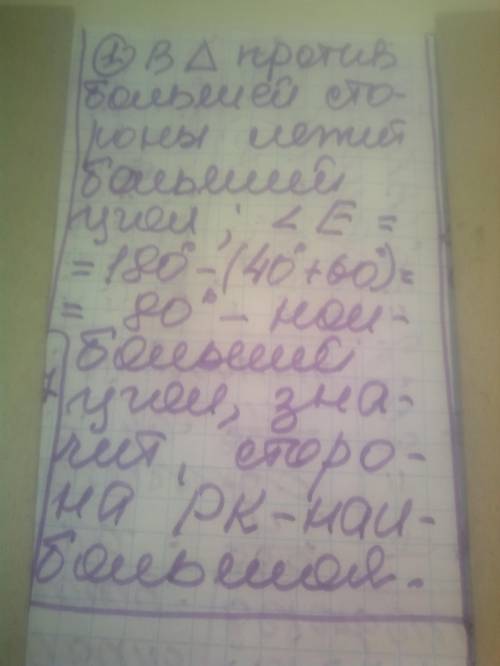 ① В △ против
большей сто-
роны лежит
больший
угол; ∠E =
= 180° - (40° + 60°) =
= 80° - наи-
больший
угол, зна-
чит, сторо-
на РК - наи-
большая.